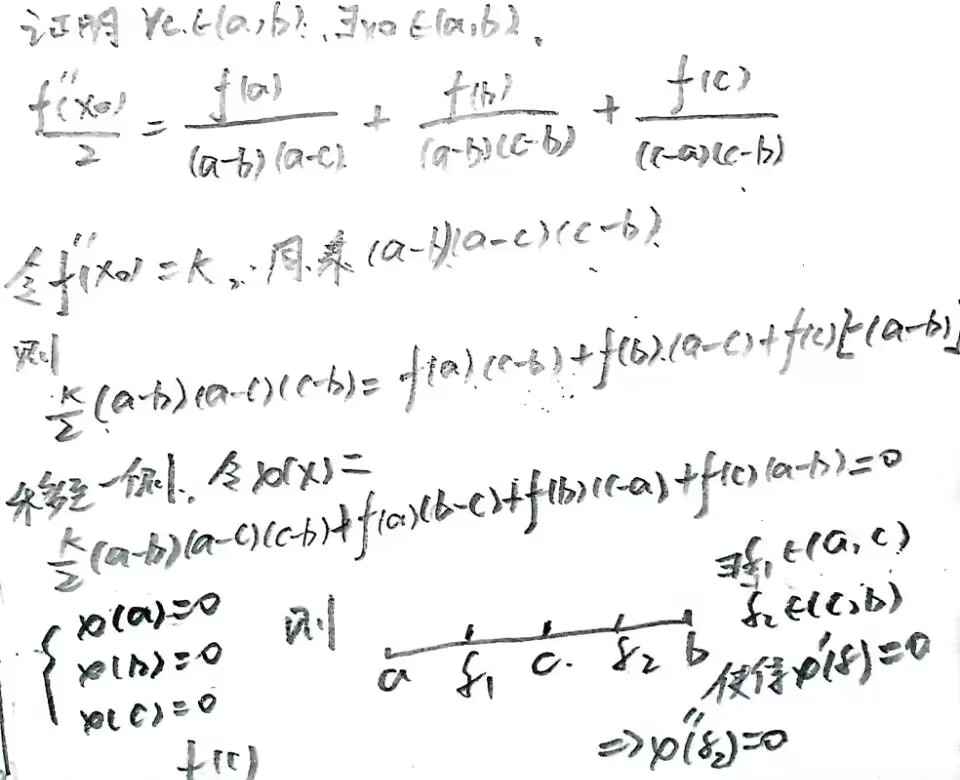 证明 ∀c∈(a,b), ∃x0∈(a,b),
f''(x0)/2 = f(a)/((a-b)(a-c)) + f(b)/((a-b)(c-b)) + f(c)/((c-a)(c-b))
令f''(x0)=K, 同乘(a-b)(a-c)(c-b)
则
K/2 (a-b)(a-c)(c-b) = f(a)(c-b)+f(b)(a-c)+f(c)[-(a-b)]
一侧, 令φ(x)=
K/2 (a-b)(a-c)(c-b)+f(a)(b-c)+f(b)(c-a)+f(c)(a-b)=0
{ φ(a)=0
φ(b)=0
φ(c)=0
则
a ξ1 c ξ2 b
∃ξ1∈(a,c)
ξ2∈(c,b)
使得φ'(ξ)=0
⇒φ''(ξ2)=0
f(c)